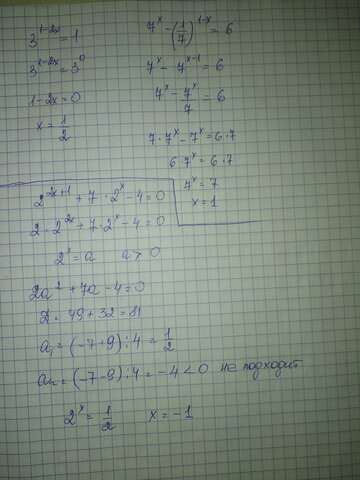 3^{1-2x} = 1
3^{1-2x} = 3^0
1-2x=0
x = 1/2
7^x - (1/7)^{1-x} = 6
7^x - 7^{x-1} = 6
7^x - 7^x/7 = 6
7·7^x - 7^x = 6·7
6·7^x = 6·7
7^x = 7
x = 1
2^{2x+1} + 7·2^x - 4 = 0
2·2^{2x} + 7·2^x - 4 = 0
2^x = a a > 0
2a^2 + 7a - 4 = 0
D = 49 + 32 = 81
a₁ = (-7+9):4 = 1/2
a₂ = (-7-9):4 = -4 < 0 не подходит
2^x = 1/2 x = -1